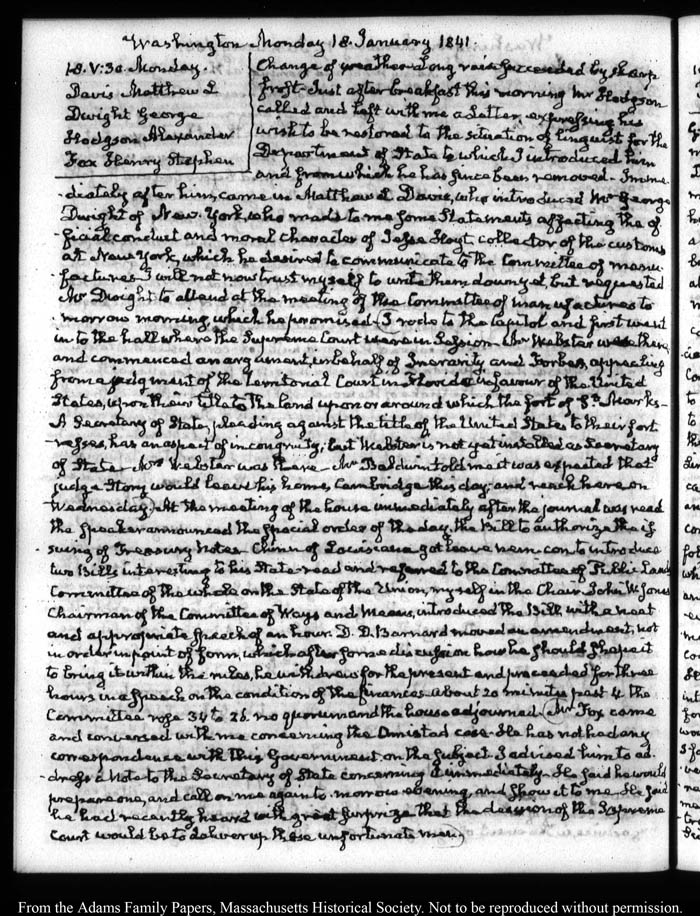 Washington Monday 18. January 1841.
18. V:30. Monday.
Davis Matthew L
Dwight George
Hodgson Alexander
Fox Henry Stephen
Change of weather. Long rain succeeded by sharp
frost. Just after breakfast this morning Mr Hodgson
called and left with me a Letter, expressing his
wish to be restored to the situation of linguist for the
Department of State to which I introduced him
and from which he has since been removed. Imme
diately after him, came in Matthew L Davis, who introduced Mr George
Dwight of New-York, who made to me some Statements affecting the of
ficial conduct and moral character of Jesse Hoyt, collector of the customs
at New York, which he desired to communicate to the Committee of manu
factures. I will not now trust myself to write them down, but requested
Mr Dwight to attend at the meeting of the Committee of manufactures to
morrow morning, which he promised. I rode to the Capitol and first went
in to the hall where the Supreme Court were in Session. Mr Webster was there
and commenced an argument, in behalf of Inerarity and Forbes, appealing
from a judgment of the territorial Court in Florida in favour of the United
States, upon their title to the land upon or around which the fort of St. Marks
A Secretary of State, pleading against the title of the United States to their fort
resses, has an aspect of incongruity; but Webster is not yet installed as Secretary
of State. Mrs Webster was there. Mr Baldwin told me it was expected that
judge Story would leave his home, Cambridge this day and reach here on
Wednesday. At the meeting of the house immediately after the journal was read
the Speaker announced the Special order of the day, the Bill to authorize the is
suing of Treasury Notes. Chinn of Louisiana got leave nem. con. to introduce
two Bills interesting to his State read and referred to the Committee of Public Lands
Committee of the whole on the State of the Union, myself in the Chair. John W. Jones
Chairman of the Committee of Ways and Means, introduced the Bill, with a neat
and appropriate speech of an hour. D. D. Barnard moved an amendment, not
in order in point of form, which after some discussion how he should shape it
to bring it within the rules, he withdrew for the present and proceeded for three
hours in a speech on the condition of the finances. About 20 minutes past 4 the
Committee rose 34 to 26. no quorum and the house adjourned. Mr Fox came
and conversed with me concerning the Amistad case. He has not had any
correspondence with this Government on the subject. I advised him to ad
dress a Note to the Secretary of State concerning it immediately. He said he would
prepare one, and call on me again to-morrow evening, and show it to me. He said
he had recently heard with great surprize that the decision of the Supreme
Court would be to deliver up these unfortunate men.
From the Adams Family Papers, Massachusetts Historical Society. Not to be reproduced without permission.